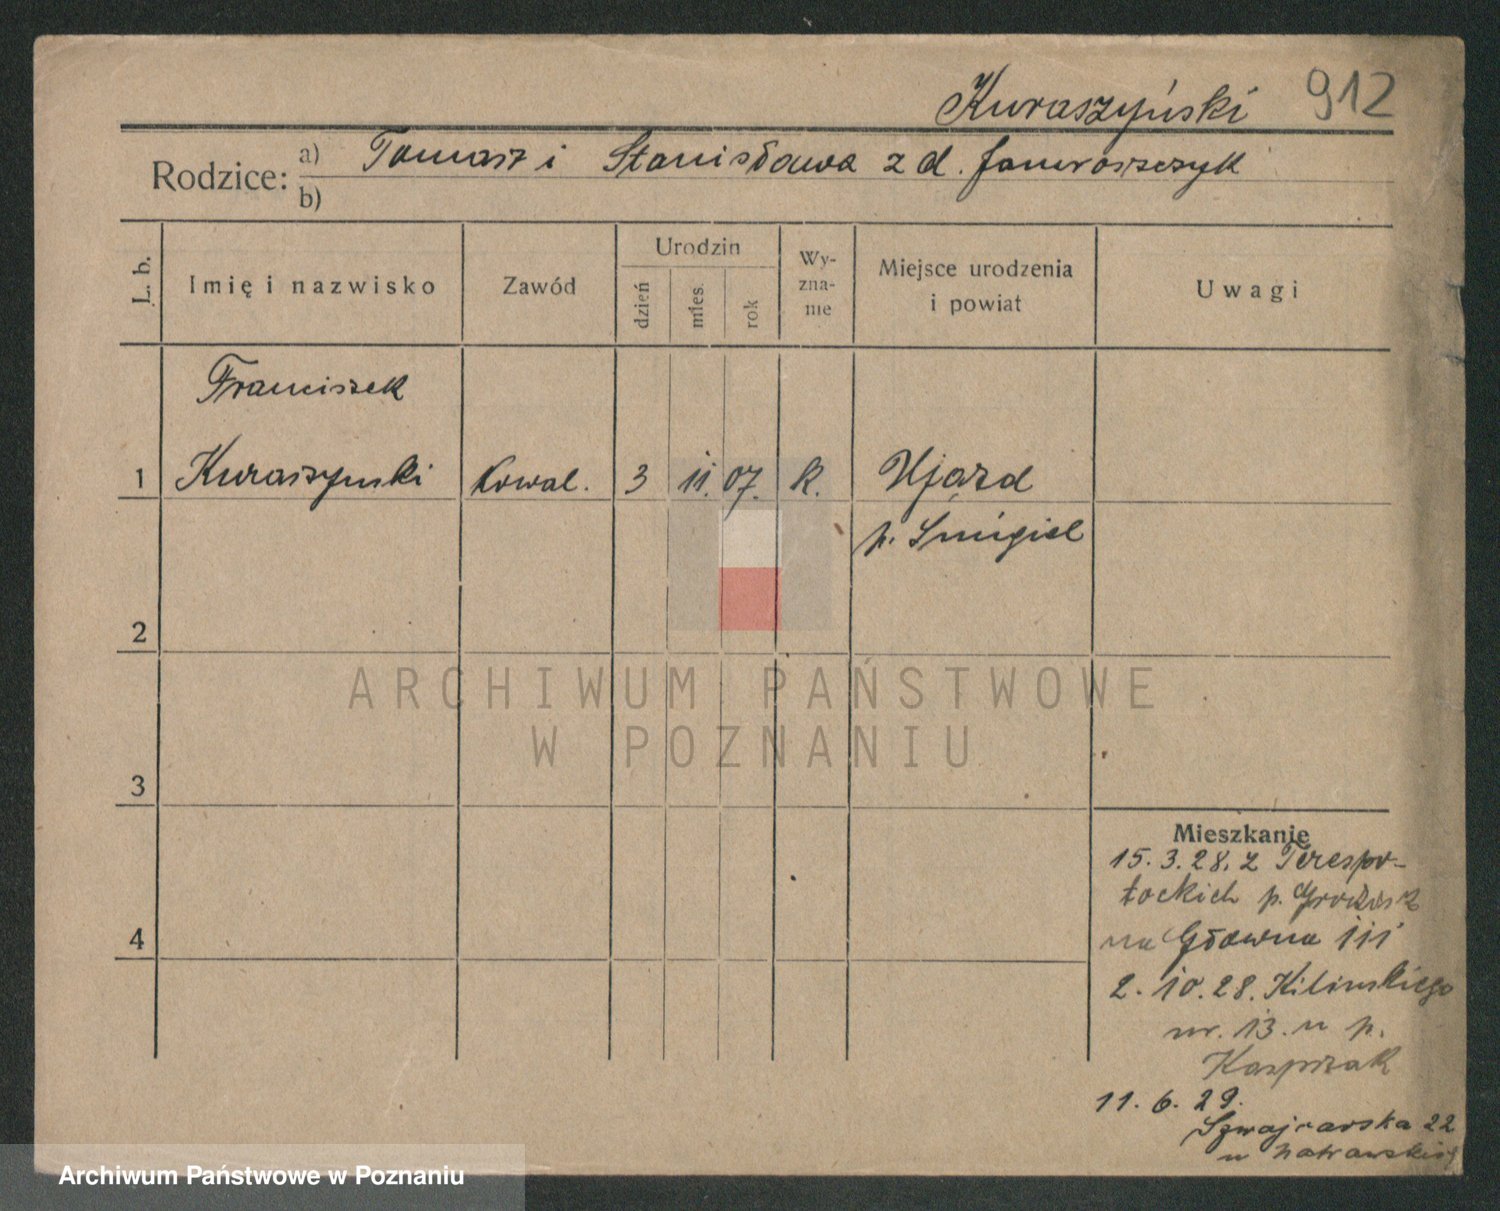 Kuraszyński 912
Rodzice: a) Tomasz i Stanisława z d. Jamroszczyk
b)
L. b. Imię i nazwisko Zawód Urodzin dzień mies. rok Wy-zna-nie Miejsce urodzenia i powiat Uwagi
Franciszek
1 Kuraszynski Kowal. 3 11. 07. k. Ujazd
p. Śmigiel
2
ARCHIWUM PAŃSTWOWE
W POZNANIU
3
Mieszkanie
15. 3. 28. z Terespo-
tockich p. Grodzisz
4
na Główna III
2. 10. 28. Kilinskiego
nr. 13. u p.
Kasprzak
11. 6. 29.
Szwajcarska 22
u
Archiwum Państwowe w Poznaniu